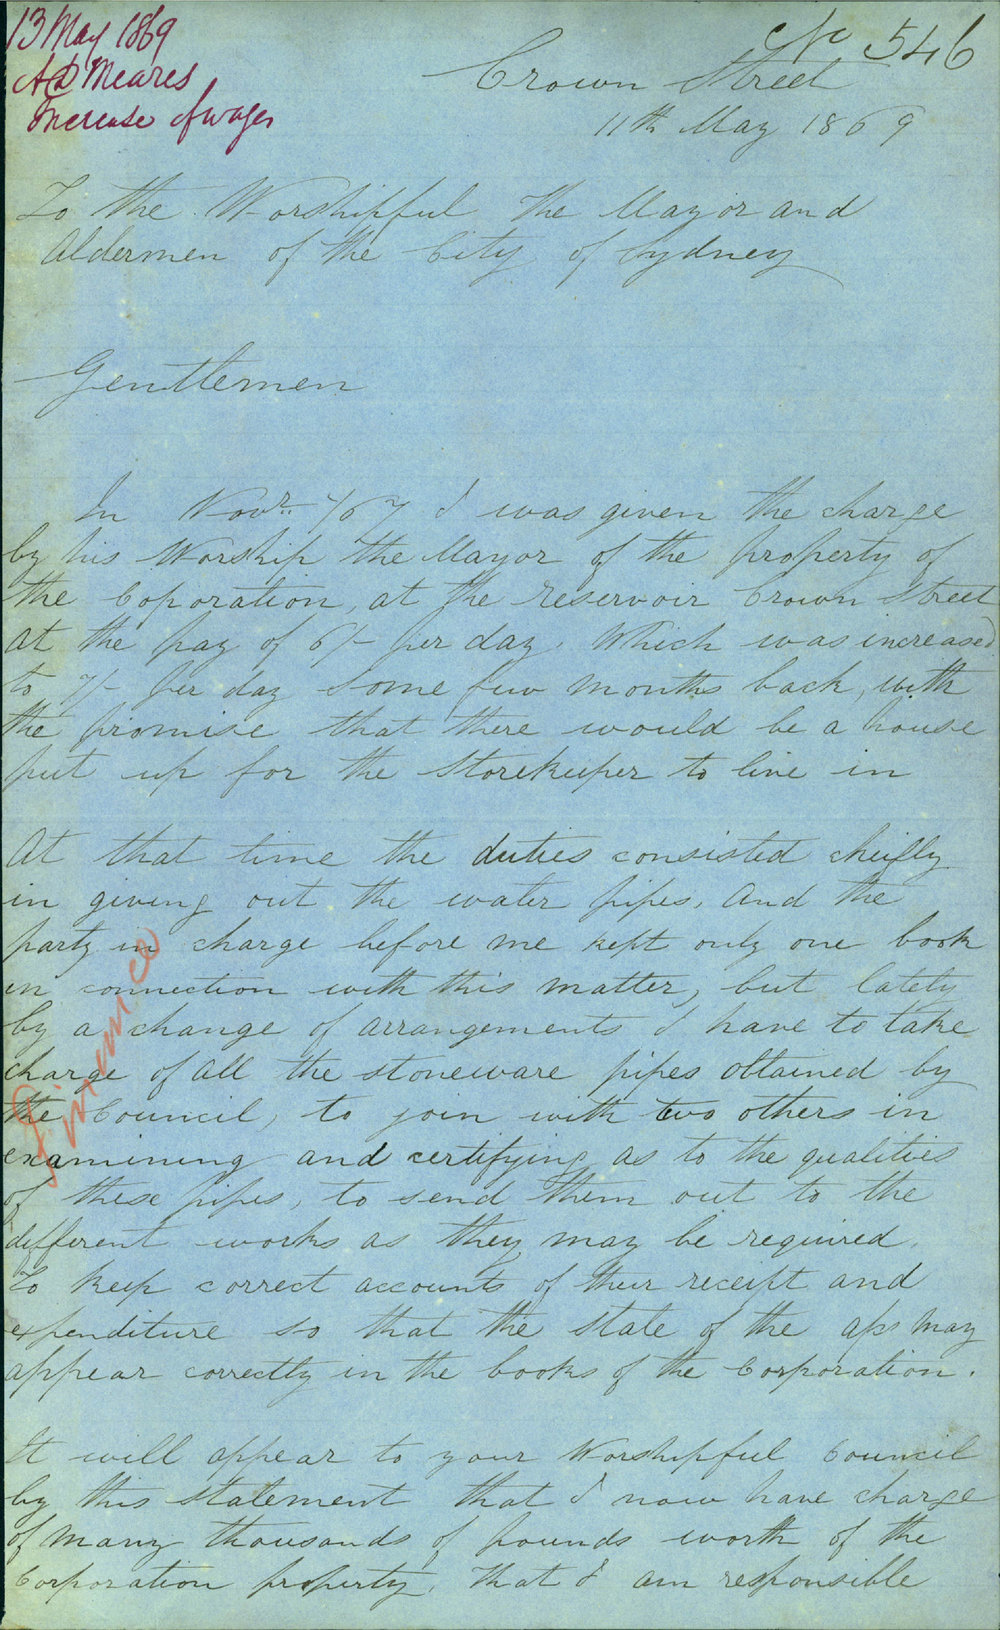 13 May 1869
A D Meares
Increase of wages
No 546
Crown Street
11th May 1869
To the Worshipful the Mayor and
Aldermen of the City of Sydney
Gentlemen
In Novr /67 I was given the charge
by his Worship the Mayor of the property of
the Coporation, at the reservoir Crown Street
at the pay of 6/- per day. Which was increased
to 7/- per day some few months back, with
the promise that there would be a house
put up for the Storekeeper to live in
At that time the duties consisted cheifly
in giving out the water pipes, and the
party in charge before me kept only one book
in connection with this matter, but lately
by a change of arrangements I have to take
charge of all the stoneware pipes obtained by
the Council, to join with two others in
examining and certifying as to the qualities
of these pipes, to send them out to the
different works as they may be required.
To keep correct accounts of their receipt and
expenditure so that the state of the may
appear correctly in the books of the Corporation.
It will appear to your Worshipful Council
by this statement that I now have charge
of many thousands of pounds worth of the
Corporation property, that I am responsible
Finance